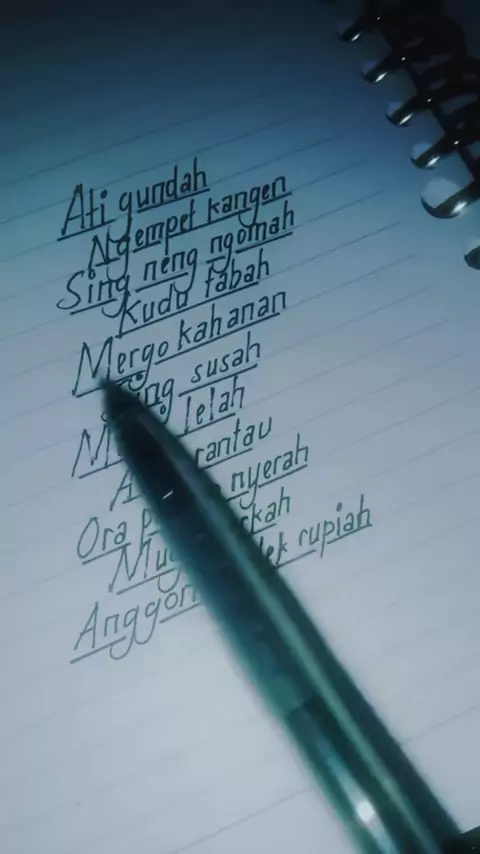 Ati gundah
Ngempet kangen
Sing neng ngomah
Kudu tabah
Mergo kahanan
susah
lelah
rantau
nyerah
Ora
rupiah